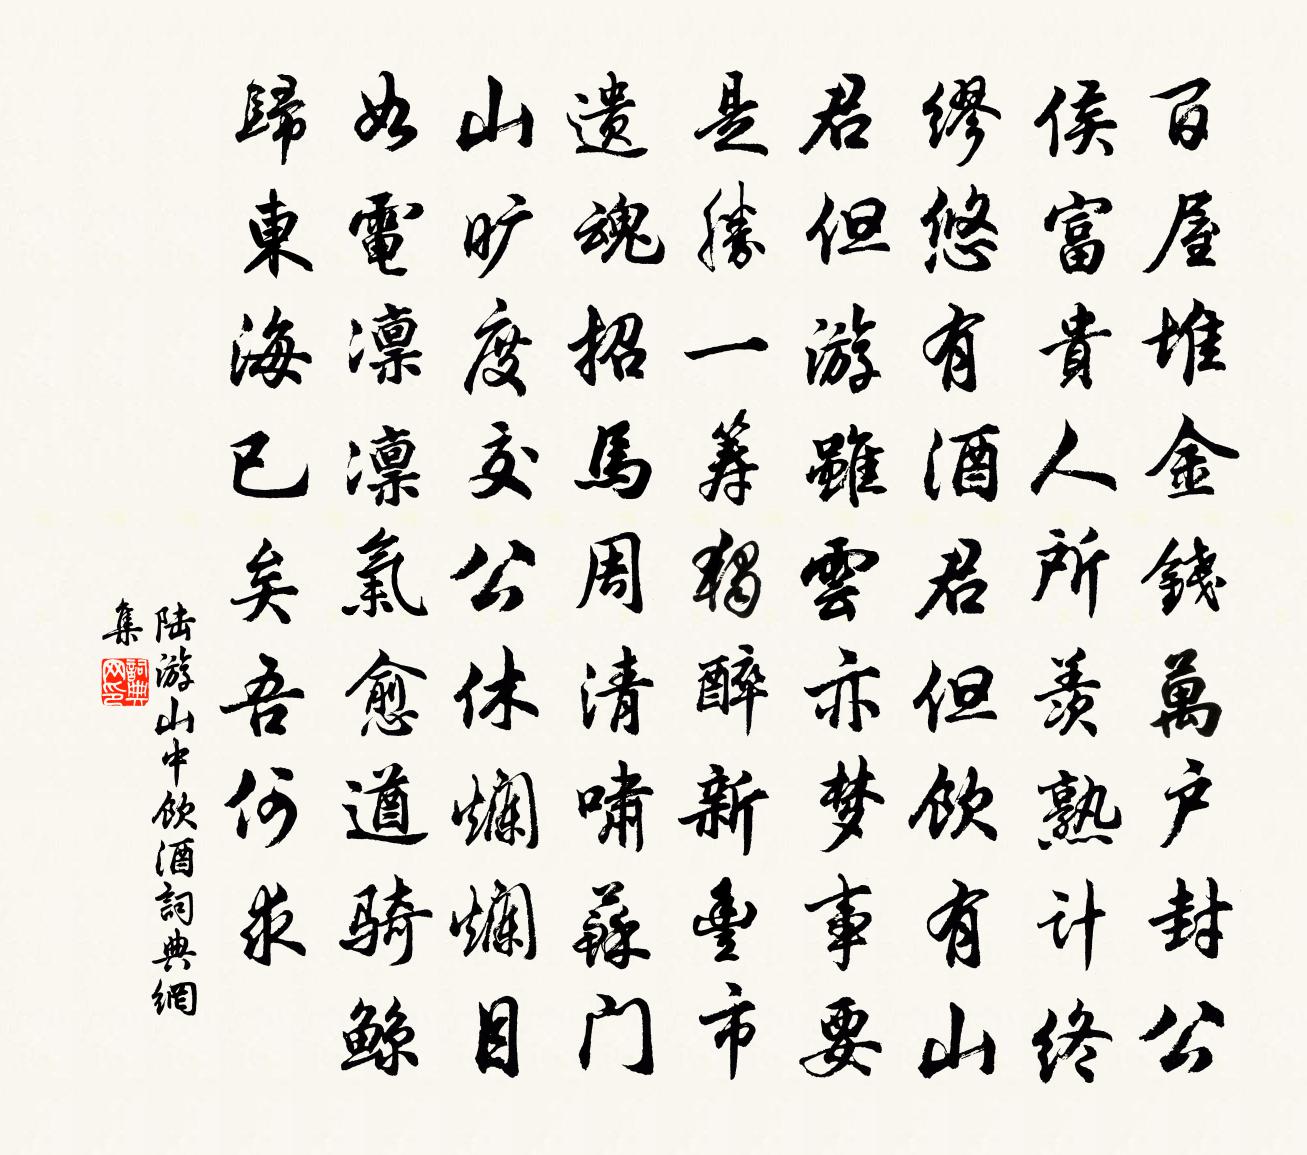 百屋堆金錢萬户封公
侯富貴人所羨熟计终
缪悠有酒君但飲有山
君但游雖雲亦梦事要
是勝一筹独醉新豐市
遗魂招馬周清嘯蘇门
山旷度交公休爛爛目
如電凛凛氣愈遒骑鲸
歸東海已矣吾何求
陆游山中飲酒詞典網
集
詞典网印